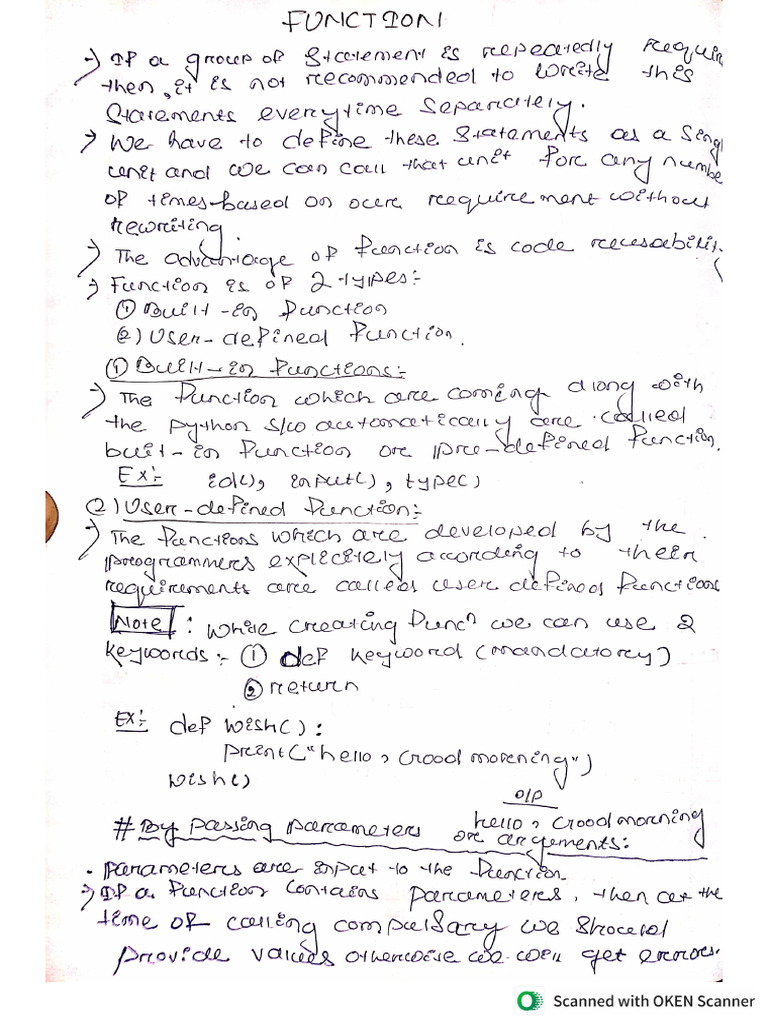 FUNCTION
→ If a group of statement is repeatedly requir
then, it is not recommended to write this
statements everytime separately.
→ We have to define these statements as a singl
unit and we can call that unit for any numbe
of times based on our requirement without
rewriting.
→ The advantage of function is code reusabilit.
→ Function is of 2 types:-
① Built-in function
② User-defined function.
① Built-in functions:-
→ The function which are coming along with
the python s/w automatically are called
built-in function or pre-defined function.
Ex:- id(), input(), type()
② User-defined function:-
→ The functions which are developed by the
programmers explicitely according to their
requirements are called user defined functions
Note : While creating funcⁿ we can use 2
keywords:- ① def keyword (mandatory)
② return
Ex:- def wish():
print("hello, Good morning")
wish()
o/p
hello, Good morning
# By passing parameters or arguments:
• parameters are input to the function.
→ If a function contains parameters, then at the
time of calling compulsary we should
provide values otherwise we will get errors.
Scanned with OKEN Scanner